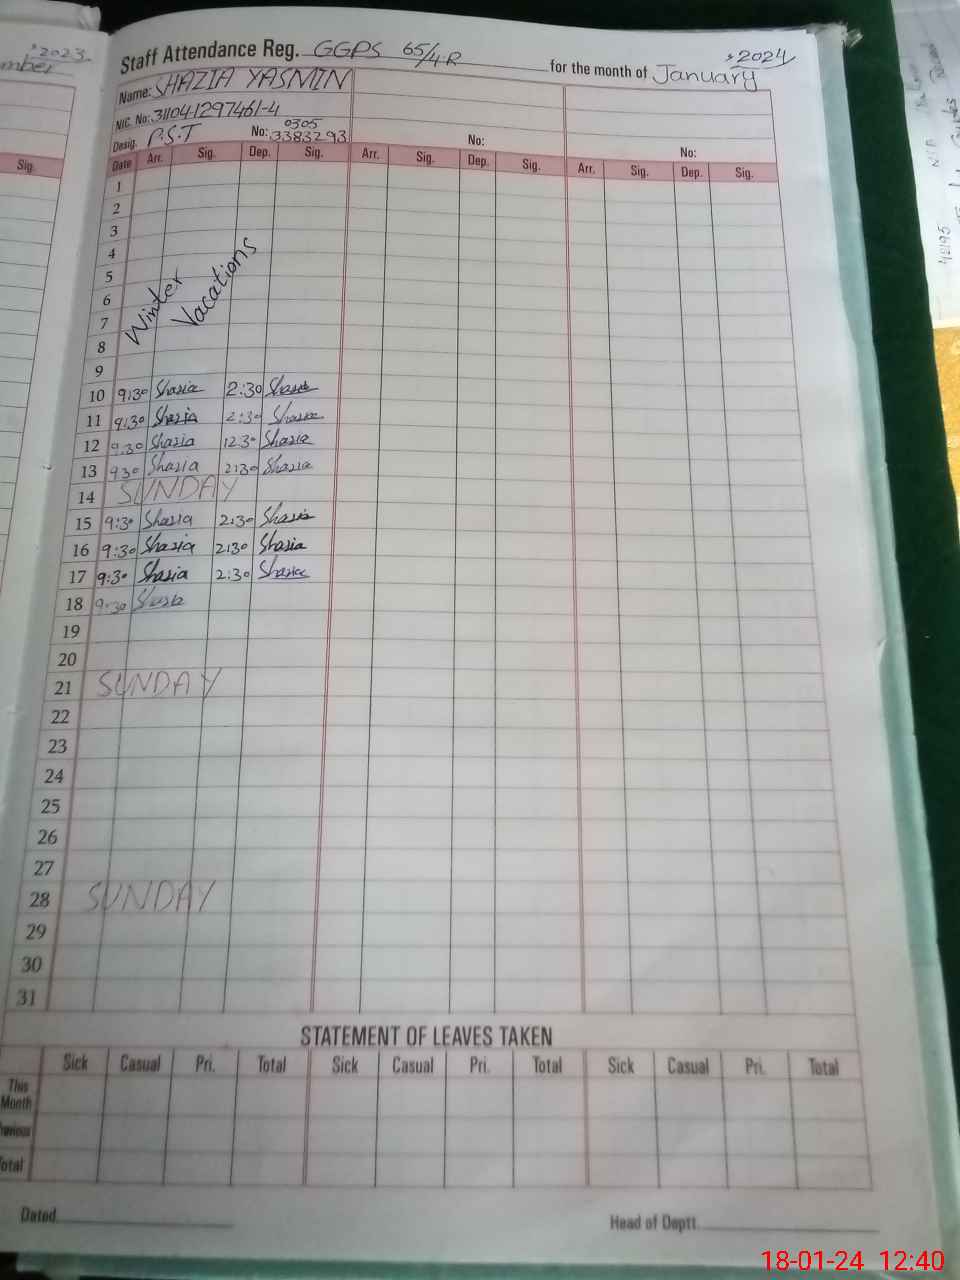 *2023
mber
Sig.
Staff Attendance Reg. GGPS 65/4R for the month of January *2024
Name: SHAZIA YASMIN
NIC. No: 31104-1297461-4
Desig. P.S.T No: 0305 3383293 No: No:
Date Arr. Sig. Dep. Sig. Arr. Sig. Dep. Sig. Arr. Sig. Dep. Sig.
1
2
3
4
5
6
7
8
Winter
Vacations
9
10 9:30 Shazia 2:30 Shazia
11 9:30 Shazia 2:30 Shazia
12 9:30 Shazia 12:30 Shazia
13 9:30 Shazia 2:30 Shazia
14 SUNDAY
15 9:30 Shazia 2:30 Shazia
16 9:30 Shazia 2:30 Shazia
17 9:30 Shazia 2:30 Shazia
18 9:30 Shazia
19
20
21 SUNDAY
22
23
24
25
26
27
28 SUNDAY
29
30
31
STATEMENT OF LEAVES TAKEN
Sick Casual Pri. Total Sick Casual Pri. Total Sick Casual Pri. Total
This
Month
revious
otal
Dated
Head of Deptt.
18-01-24 12:40